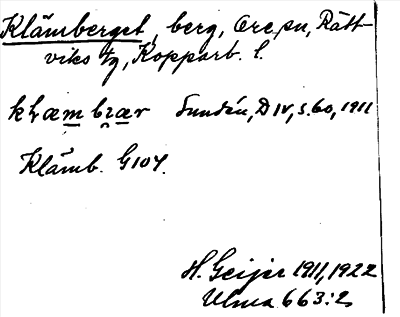 Klämberget, berg, Ore sn, Rätt-
viks tg, Kopparb. l.
kḷæm bɛ̣ær Sundén, D IV, s. 60, 1911
Klämb. G104.
H. Geijer 1911, 1922
Ulma 663:2